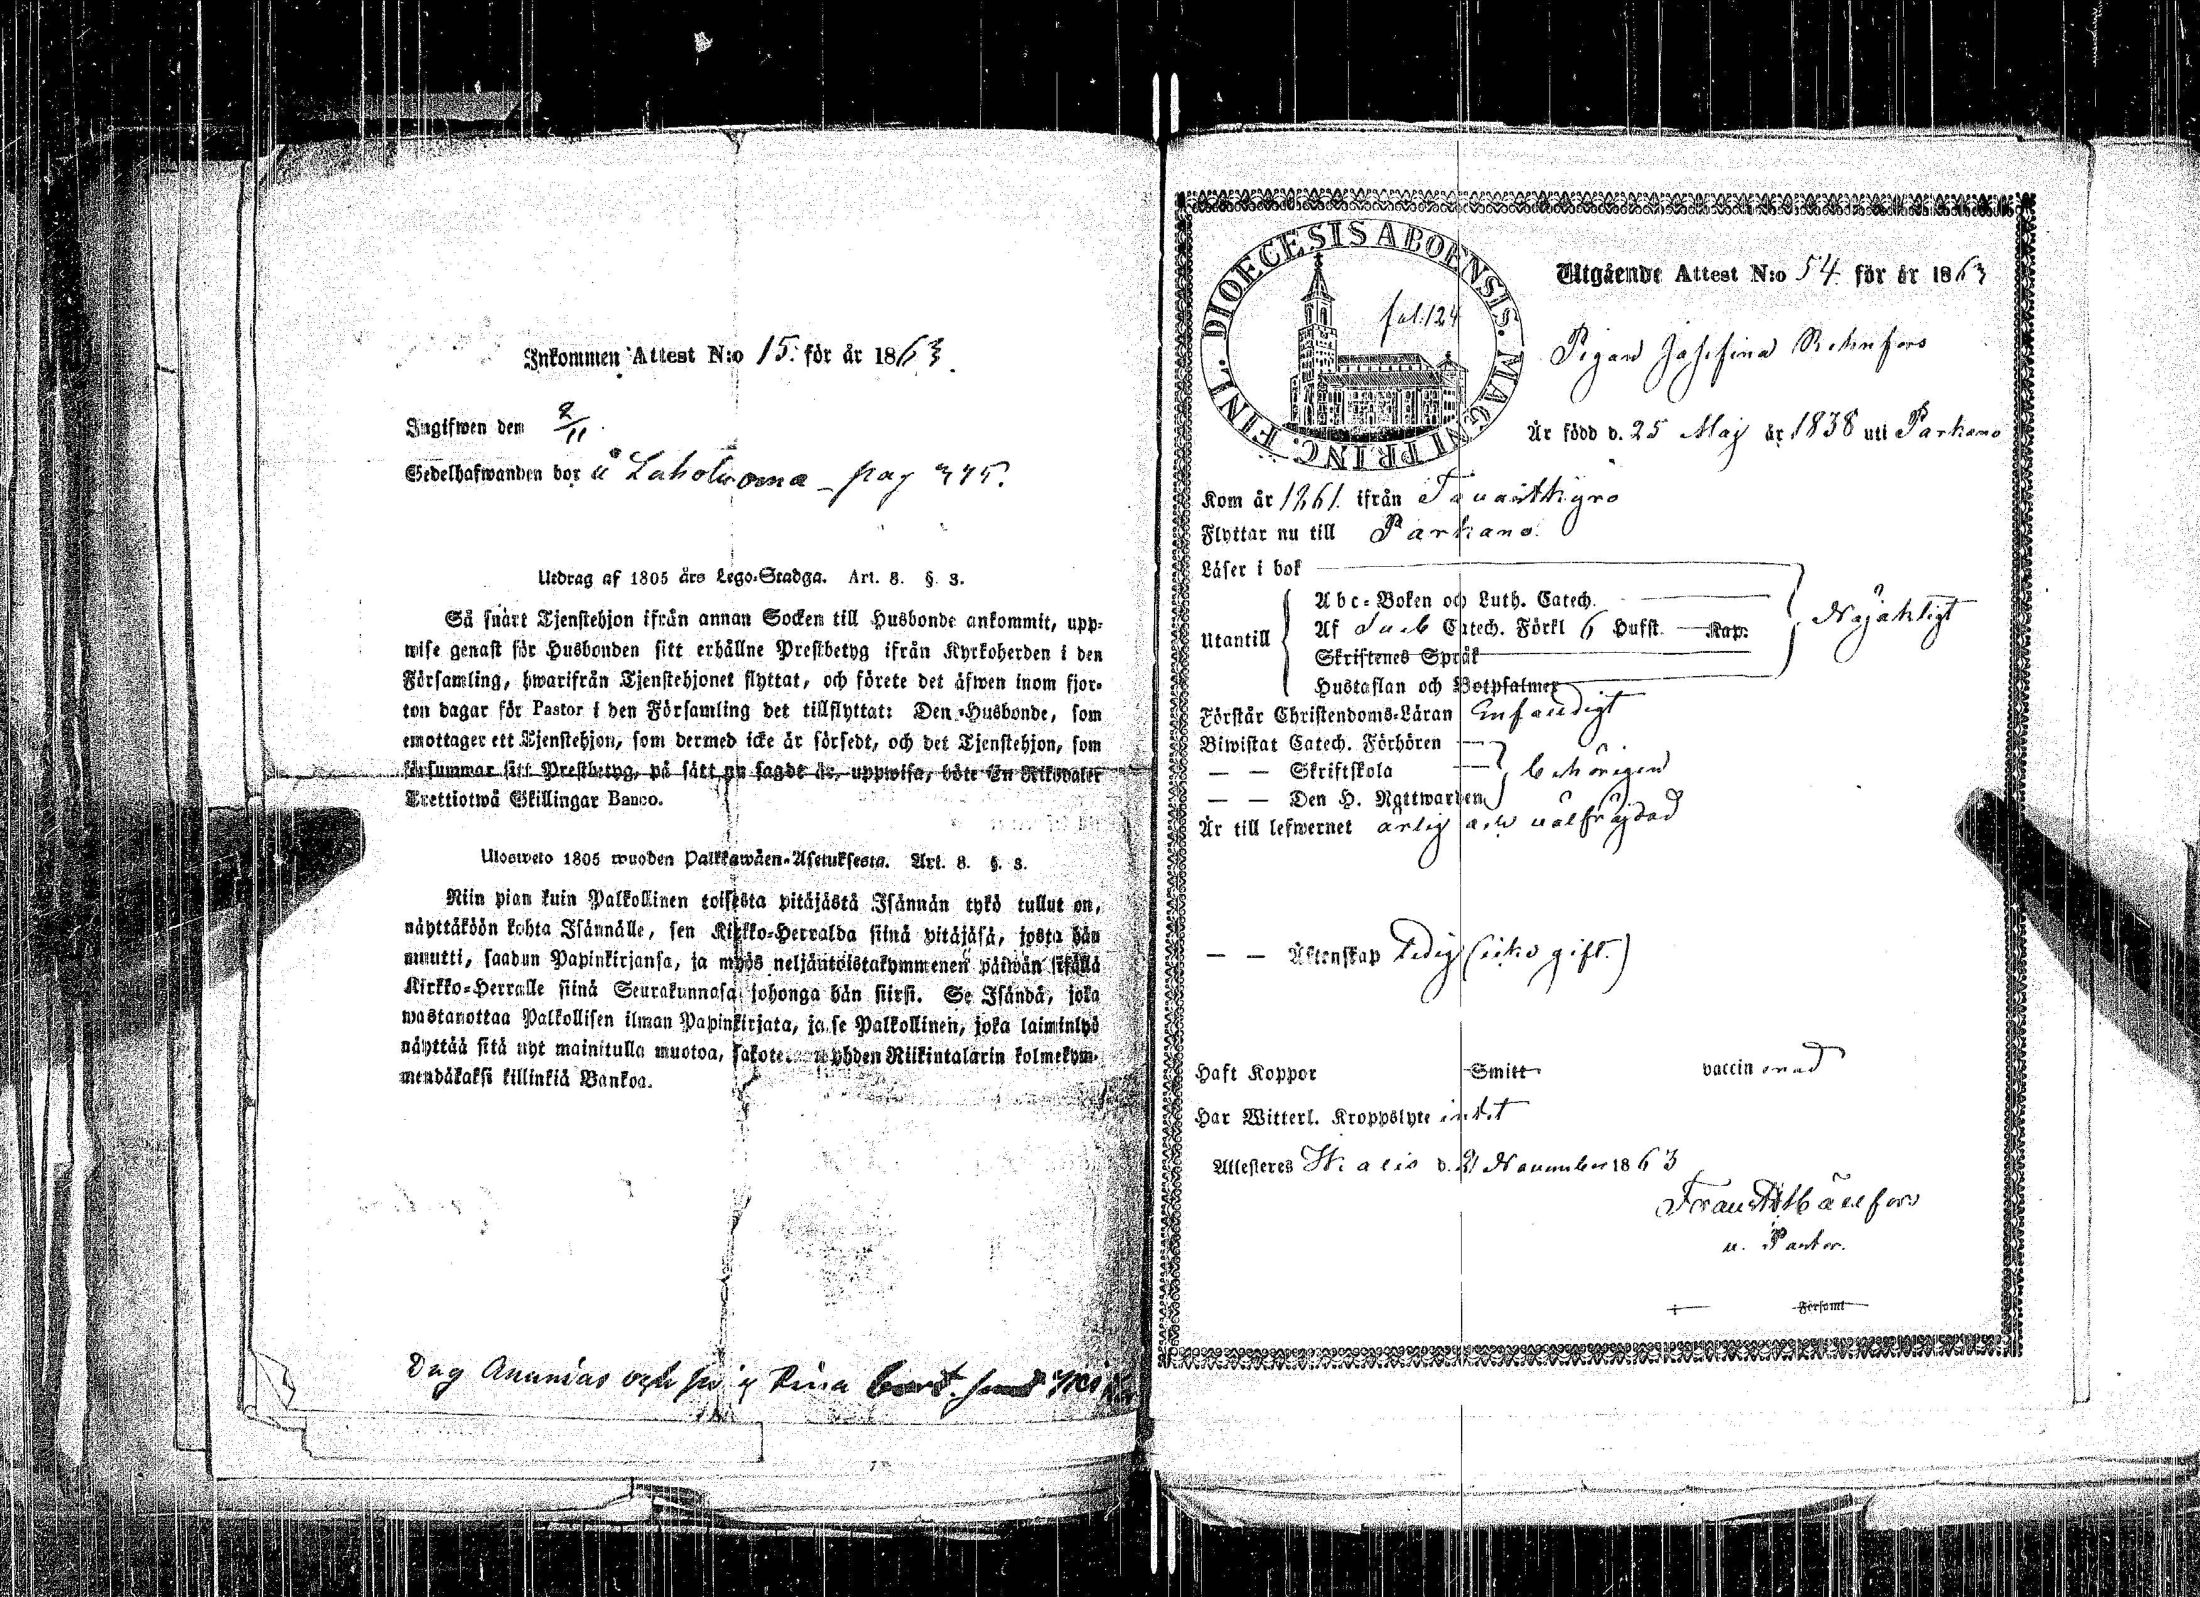 Inkommen Attest N:o 15. för år 1863.
Ingifwen den 2/11.
Sedelhafwanden bor å Laholuoma - pag 375.
Utdrag af 1805 års Lego-Stadga. Art. 8. §. 3.
Så snart Tjenstehjon ifrån annan Socken till Husbonde ankommit, upp-
wise genast för Husbonden sitt erhållne Prestbetyg ifrån Kyrkoherden i den
Församling, hwarifrån Tjenstehjonet flyttat, och förete det äfwen inom fjor-
ton dagar för Pastor i den Församling det tillflyttat: Den Husbonde, som
emottager ett Tjenstehjon, som dermed icke är försedt, och det Tjenstehjon, som
försummar sitt Prestbetyg, på sätt nu sagdt är, uppwisa, böte En Riksdaler
Trettiotwå Skillingar Banco.
Ulosweto 1805 wuoden Palkkawäen-Asetuksesta. Art. 8. §. 3.
Niin pian kuin Palkollinen toisesta pitäjästä Isännän tykö tullut on,
näyttäköön kohta Isännälle, sen Kirkko-Herralda siinä pitäjäsä, josta hän
muutti, saadun Papinkirjansa, ja myös neljäntoistakymmenen päiwän sisällä
Kirkko-Herralle siinä Seurakunnasa johonga hän siirsi. Se Isändä, joka
wastanottaa Palkollisen ilman Papinkirjata, ja se Palkollinen, joka laiminlyö
näyttää sitä nyt mainitulla muotoa, yhden Riikintalarin kolmekym-
mendäkaksi killinkiä Bankoa.
Dag Ananias och
DIOECESIS ABOENSIS. MAGNI PRINC. FINL.
fol. 124
Utgående Attest N:o 54. för år 1863
Pigan Josefina Rehnfors
Är född d. 25 Maj år 1838 uti Parkano
Kom år 1861. ifrån Tavastkyro
Flyttar nu till Parkano.
Läser i bok
Utantill
Abc-Boken och Luth. Catech.
Af Sveb Catech. Förkl 6 Hufst. Kap.
Skriftenes Språk
Hustaflan och Botpsalmer
Nöjaktigt
Förstår Christendoms-Läran Enfaldigt
Biwistat Catech. Förhören
— — Skriftskola
— — Den H. Nattwarden
behörigen
Är till lefwernet ärlig och välfräjdad
— — Äktenskap ledig (icke gift.)
Haft Koppor Smitt vaccinerad
Har Witterl. Kroppslyte intet
Attesteres Ikalis d. 2 November 1863
Frans Hällfors
v. Pastor.
i Församl